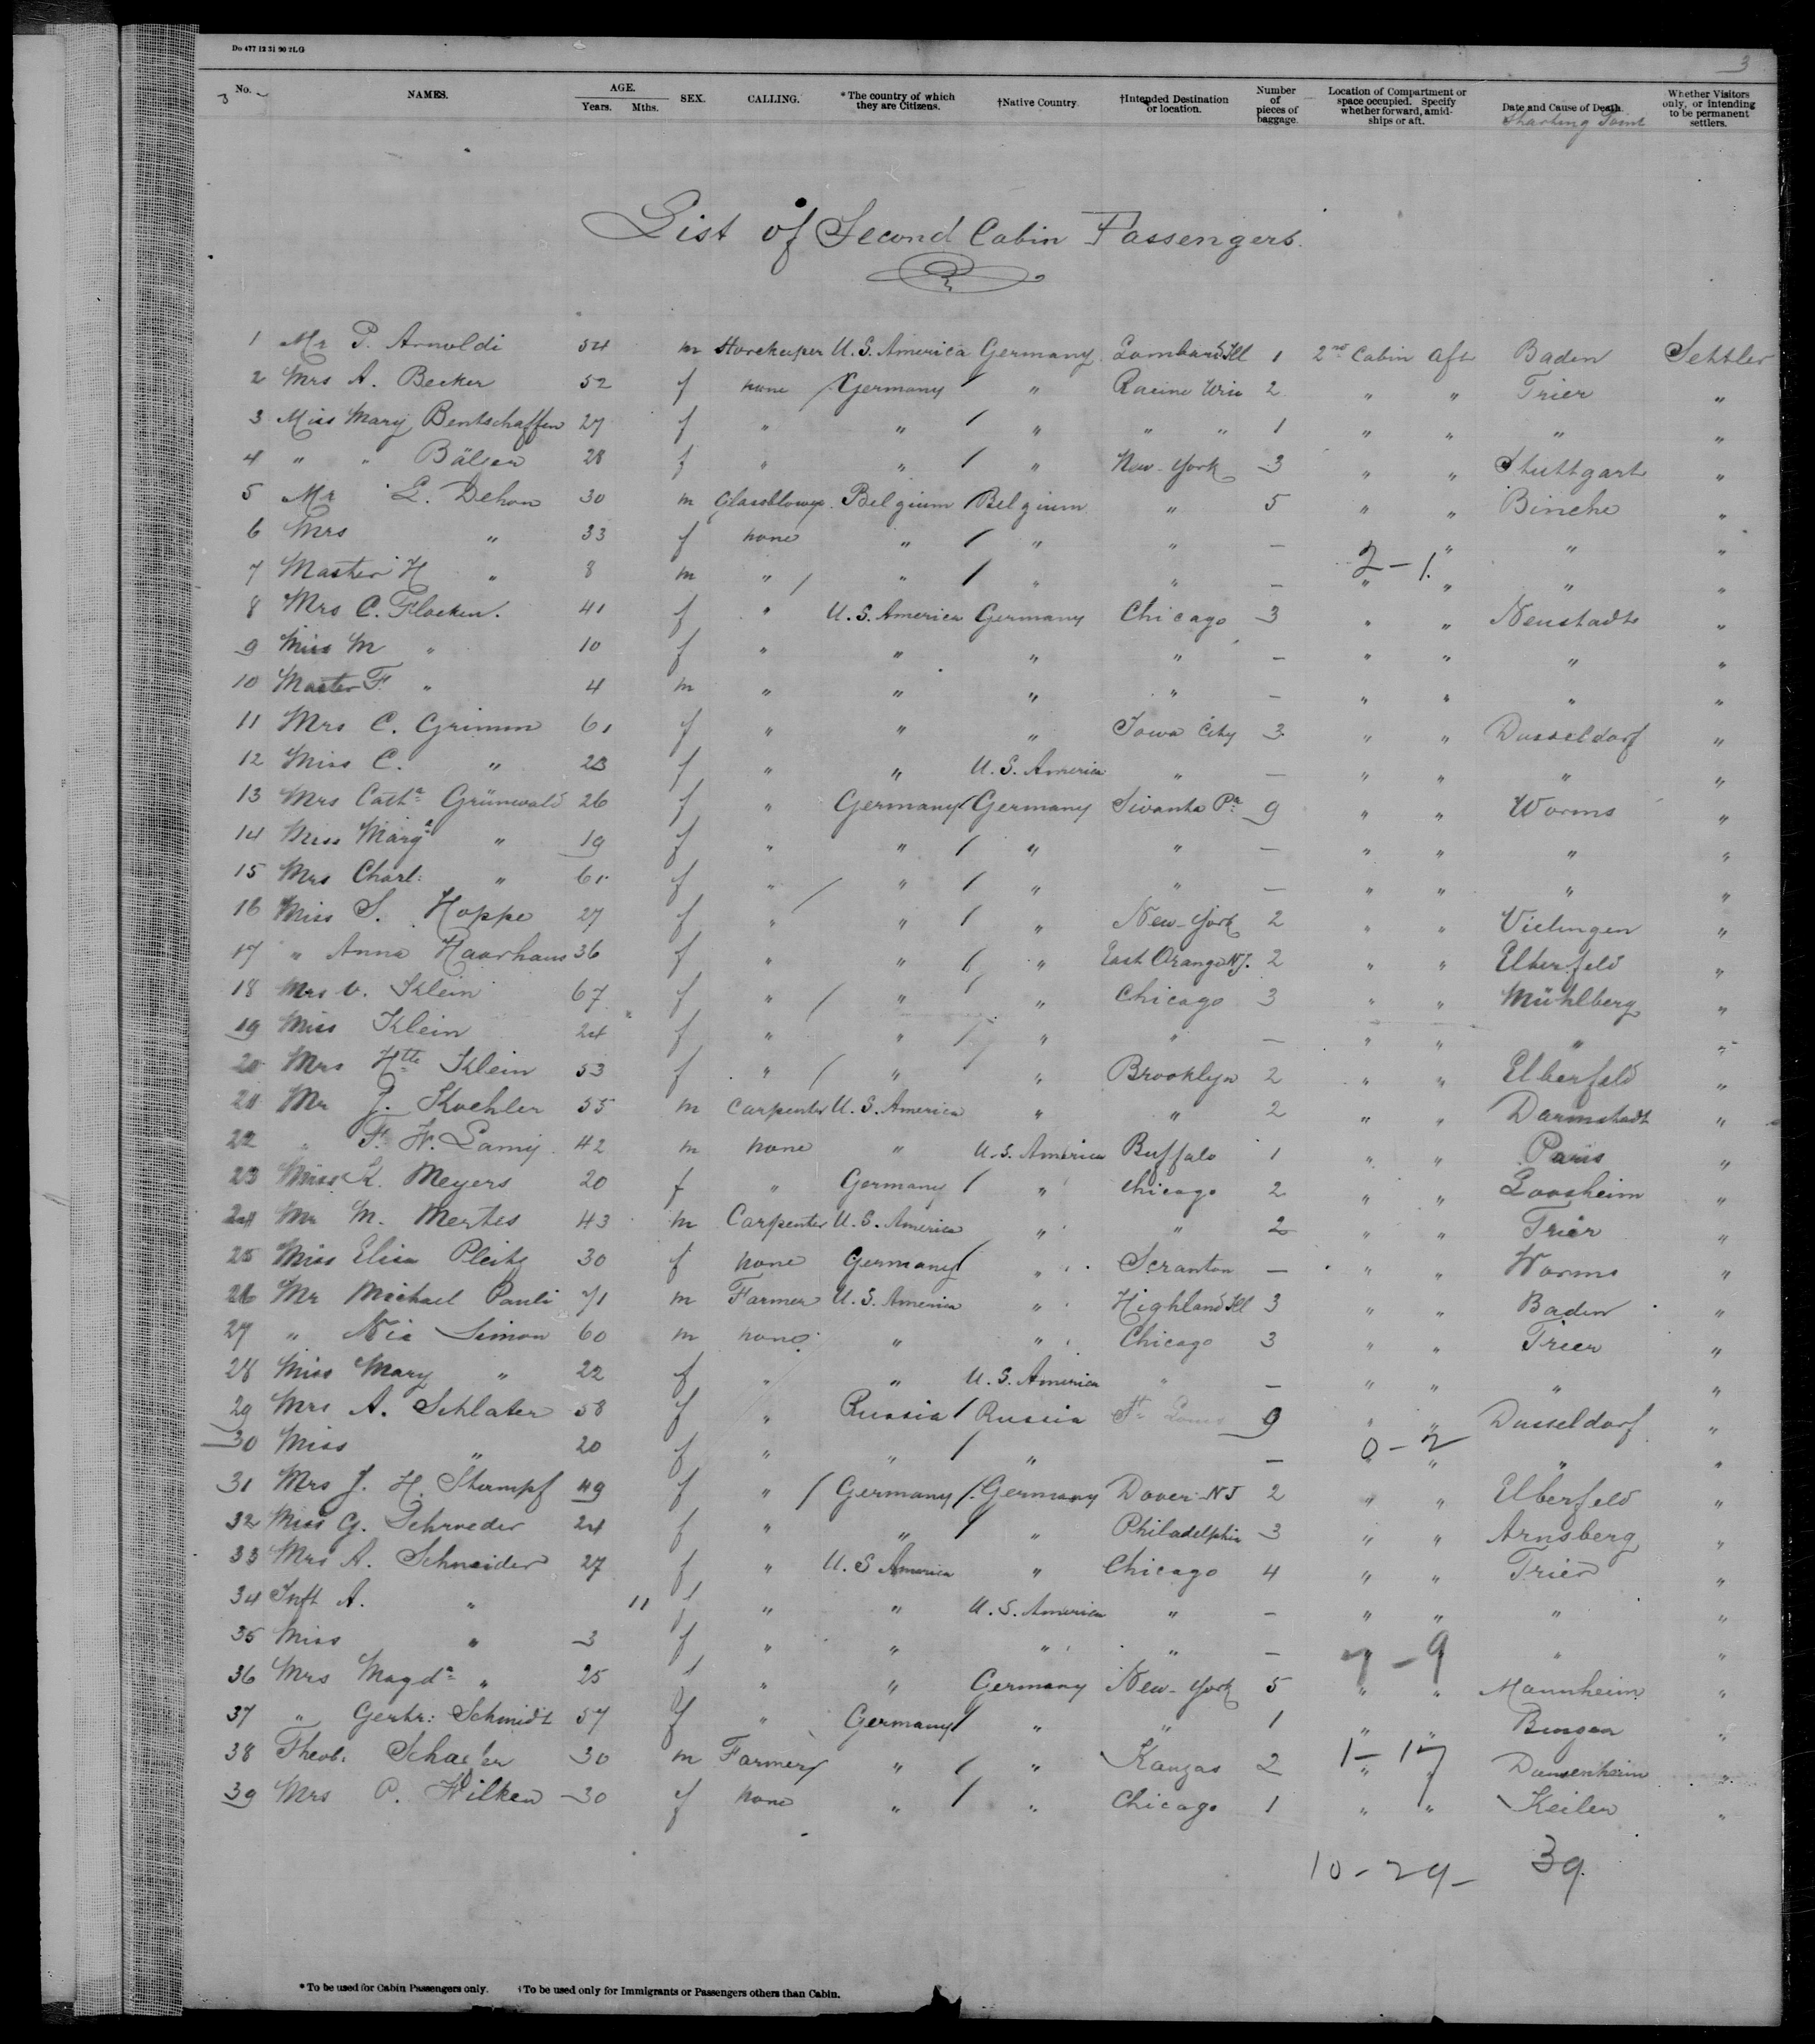 Do 477 12 31 90 2LG
3
No. NAMES. AGE. Years. Mths. SEX. CALLING. *The country of which they are Citizens. †Native Country. †Intended Destination or location. Number of pieces of baggage. Location of Compartment or space occupied. Specify whether forward, amidships or aft. Date and Cause of Death. Starting Point Whether Visitors only, or intending to be permanent settlers.
List of Second Cabin Passengers.
1 Mr P. Arnoldi 54 m Storekeeper U.S. America Germany Lombard Ill 1 2nd Cabin aft Baden Settler
2 Mrs A. Becker 52 f none Germany " Racine Wis 2 " " Trier "
3 Miss Mary Bentschaffen 27 f " " " " " 1 " " " "
4 " " Bälsen 28 f " " " New-York 3 " " Stuttgart "
5 Mr L. Dehon 30 m Glassblower Belgium Belgium " 5 " " Binche "
6 Mrs " 33 f none " " " — " " "
2 - 1
7 Master H " 8 m " " " " — " " " "
8 Mrs C. Flocken. 41 f " U.S. America Germany Chicago 3 " " Neustadt "
9 Miss M " 10 f " " " " — " " " "
10 Master F. " 4 m " " " " — " " " "
11 Mrs C. Grimm 61 f " " " Iowa City 3 " " Dusseldorf "
12 Miss C. " 23 f " " U.S. America " — " " " "
13 Mrs Catha Grünwald 26 f " Germany Germany Pa 9 " " Worms "
14 Miss Marga " 19 f " " " " — " " " "
15 Mrs Charl: " 61 f " " " " — " " " "
16 Miss S. Hoppe 27 f " " " New-York 2 " " "
17 " Anna Haarhaus 36 f " " " East Orange NJ. 2 " " Elberfeld "
18 Mrs V. Klein 67 f " " " Chicago 3 " " Mühlberg "
19 Miss Klein 24 f " " " " — " " " "
20 Mrs Htte Klein 53 f " " " Brooklyn 2 " " Elberfeld "
21 Mr J. Koehler 55 m Carpenter U.S. America " " 2 " " Darmstadt "
22 " F. W. Lamy 42 m none " U.S. America Buffalo 1 " " Paris "
23 Miss K. Meyers 20 f " Germany " Chicago 2 " " Loosheim "
24 Mr M. Mertes 43 m Carpenter U.S. America " " 2 " " Trier "
25 Miss Elisa Pleitz 30 f none Germany " Scranton — " " Worms "
26 Mr Michael Pauli 71 m Farmer U.S. America " Highland Ill 3 " " Baden "
27 " Nic Simon 60 m none " " Chicago 3 " " Trier "
28 Miss Mary " 22 f " " U.S. America " — " " " "
29 Mrs A. Schlater 58 f " Russia Russia St Louis 9 " " Dusseldorf "
0 - 2
30 Miss " 20 f " " " — " " " "
31 Mrs J. H. Stumpf 49 f " Germany Germany Dover NJ 2 " " Elberfeld "
32 Miss G. Schroeder 24 f " " " Philadelphia 3 " " Arnsberg "
33 Mrs A. Schneider 27 f " U.S America " Chicago 4 " " Trier "
34 Inft A. " 11 f " " U.S. America " — " " " "
35 Miss " 3 f " " " " — " "
7 - 9
36 Mrs Magda " 25 f " " Germany New-York 5 " " Mannheim "
37 " Gertr: Schmidt 57 f " Germany " " 1 " " Bingen "
38 Theob. Schaefer 30 m Farmer " " Kanzas 2 " " "
1 - 17
39 Mrs P. Wilken 30 f none " " Chicago 1 " " Keilen "
10 - 29 - 39.
*To be used for Cabin Passengers only. †To be used only for Immigrants or Passengers others than Cabin.